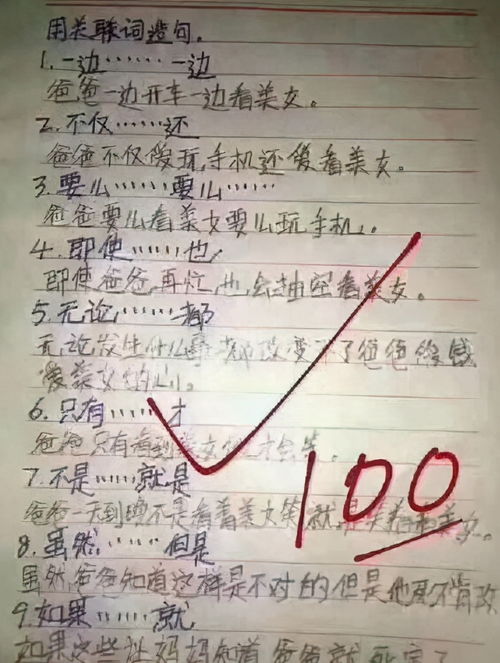 用关联词造句。
1.一边……一边
爸爸一边开车一边看美女。
2.不仅……还
爸爸不仅爱玩手机还爱看美女。
3.要么……要么……
爸爸要么看美女要么玩手机。
4.即使……也
即使爸爸再忙,也会抽空看美女。
5.无论……都
无论发生什么事都改变不了爸爸
爱美女的心。
6.只有……才
爸爸只有看到美女才会笑。
7.不是……就是
爸爸一天到晚不是看着美女笑就是笑着看美女。
8.虽然……但是
虽然爸爸知道这样是不对的但是他不肯改
9.如果……就
如果这些让妈妈知道爸爸就死定了
100